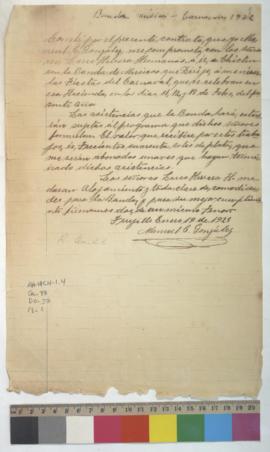 Banda música - Carnavales 1921
Consta por el presente contrato, que yo Ma-
nuel C. González, me comprometo con los señores
Larco Herrera Hermanos, á ir, á Chiclín
con la Banda de Músicos que dirijo, á ameni-
zar las Fiestas del Carnaval, que se celebran en esa
Hacienda, en los días
sente año
Las asistencias que la Banda hará, esta-
rán sujetas al programa que dichos señores
formulen. El valor que recibiré por estos traba-
jos, es, Trecientos cuarenta soles de plata, que
me serán abonados una vez que hayan termi-
nado dichas asistencias.
Los señores Larco Herrera Hs. me
daran Alojamiento y toda clase de comodida-
des para la Banda, y para su mejor cumplimien-
to firmamos dos de un mismo tenor
Trujillo Enero 19 de 1921
Manuel C. González